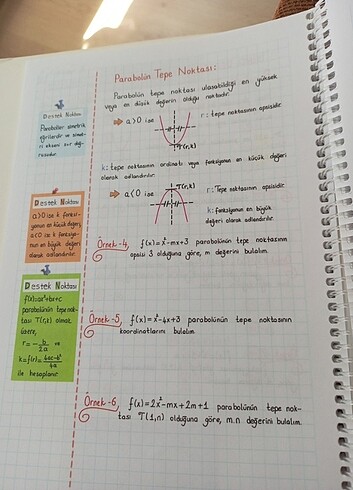 Parabolün Tepe Noktası:
Parabolün tepe noktası ulaşabildiği en yüksek
veya en düşük değerin olduğu noktadır.
a>0 ise
r: tepe noktasının apsisidir.
T(r,k)
k: tepe noktasının ordinatı veya fonksiyonun en küçük değeri
olarak adlandırılır.
a<0 ise
T(r,k)
r: Tepe noktasının apsisidir.
k: fonksiyonun en büyük
değeri olarak adlandırılır.
Örnek-4
f(x)=x²-mx+3 parabolünün tepe noktasının
apsisi 3 olduğuna göre, m değerini bulalım.
Örnek-5
f(x)=x²-4x+3 parabolünün tepe noktasının
koordinatlarını bulalım.
Örnek-6
f(x)=2x²-mx+2m+1 parabolünün tepe nok-
tası T(1,n) olduğuna göre, m.n değerini bulalım.
Destek Noktası
Paraboller simetrik
eğrilerdir ve simet-
ri ekseni bir doğ-
rusudur.
Destek Noktası
a>0 ise k fonksi-
yonun en küçük değeri,
a<0 ise k fonksiyo-
nun en büyük değeri
olarak adlandırılır.
Destek Noktası
f(x)=ax²+bx+c
parabolünün tepe nok-
tası T(r,k) olmak
üzere,
r = -b/2a ve
k = f(r) = 4ac-b²/4a
ile hesaplanır.